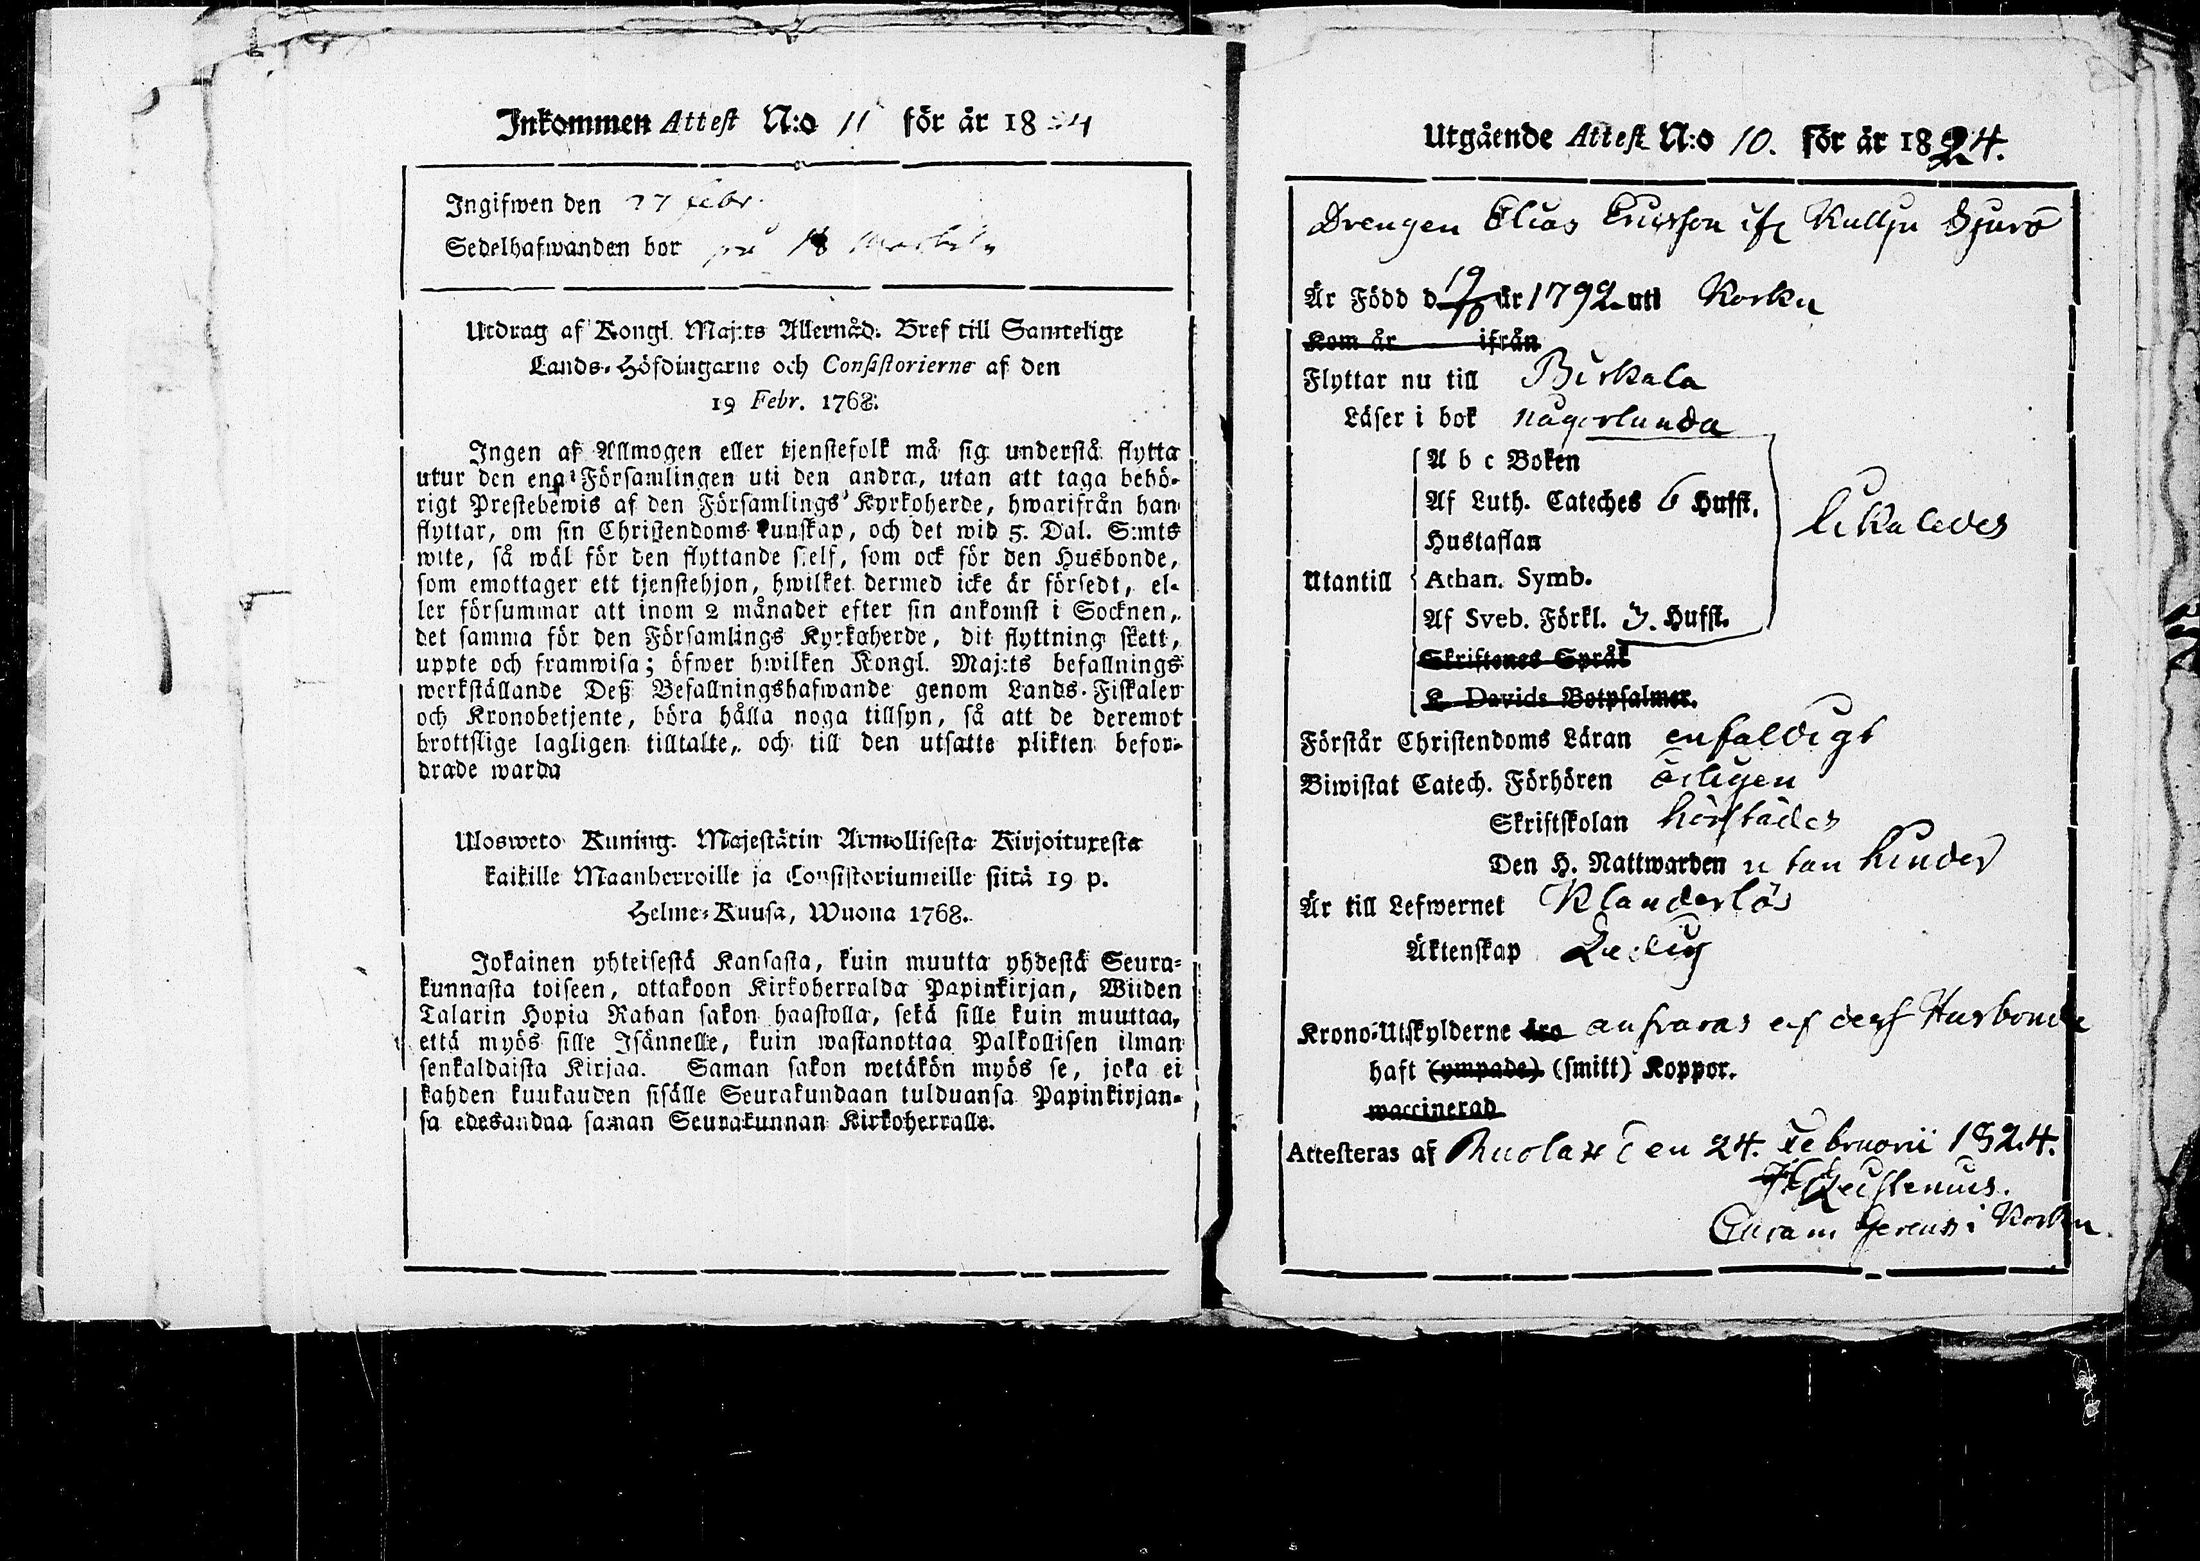 Inkommen Attest N:o 11 för år 1824
Ingifwen den 27 febr.
Sedelhafwanden bor på
Utdrag af Kongl. Maj:ts Allernåd. Bref till Samtelige
Lands-Höfdingarne och Consistorierne af den
19 Febr. 1768.
Ingen af Allmogen eller tjenstefolk må sig understå flytta
utur den ena Församlingen uti den andra, utan att taga behö-
rigt Prestebewis af den Församlings Kyrkoherde, hwarifrån han
flyttar, om sin Christendoms kunskap, och det wid 5. Dal. S:mts
wite, så wäl för den flyttande sjelf, som ock för den Husbonde,
som emottager ett tjenstehjon, hwilket dermed icke är försedt, el-
ler försummar att inom 2 månader efter sin ankomst i Socknen,
det samma för den Församlings Kyrkoherde, dit flyttning skett,
uppte och framwisa; öfwer hwilken Kongl. Maj:ts befallnings
werkställande Deß Befallningshafwande genom Lands-Fiskaler
och Kronobetjente, böra hålla noga tillsyn, så att de deremot
brottslige lagligen tilltalte, och till den utsatte plikten befor-
drade warda
Ulosweto Kuning. Majestätin Armollisesta Kirjoituxesta
kaikille Maanherroille ja Consistoriumeille siitä 19 p.
Helme-Kuusa, Wuona 1768.
Jokainen yhteisestä Kansasta, kuin muutta yhdestä Seura-
kunnasta toiseen, ottakoon Kirkoherralda Papinkirjan, Wiiden
Talarin Hopia Rahan sakon haastolla, sekä sille kuin muuttaa,
että myös sille Isännelle, kuin wastanottaa Palkollisen ilman
senkaldaista Kirjaa. Saman sakon wetäkön myös se, joka ei
kahden kuukauden sisälle Seurakundaan tulduansa Papinkirjan-
sa edesandaa saman Seurakunnan Kirkoherralle.
Utgående Attest N:o 10. för år 1824.
Drengen Elias Ericsson ifr Kullju Djurö
Är Född d 19/10 år 1792 uti Korku
Kom år ifrån
Flyttar nu till Birkala
Läser i bok någorlunda
A b c Boken
Af Luth. Cateches 6 Hufst.
Hustaflan
likaledes
Utantill Athan. Symb.
Af Sveb. Förkl. 3. Hufst.
Skriftenes Språk
K. Davids Botpsalmer.
Förstår Christendoms Läran enfaldigt
Biwistat Catech. Förhören årligen
Skriftskolan
Den H. Nattwarden utan hinder
Är till Lefwernet Klanderlös
Äktenskap Ledig
Krono-Utskylderne äro ansvaras af dess Husbonde
haft (ympade) (smitt) Koppor.
waccinerad
Attesteras af Ruolax den 24. Februarii 1824.
Curam Gerens i Korku.